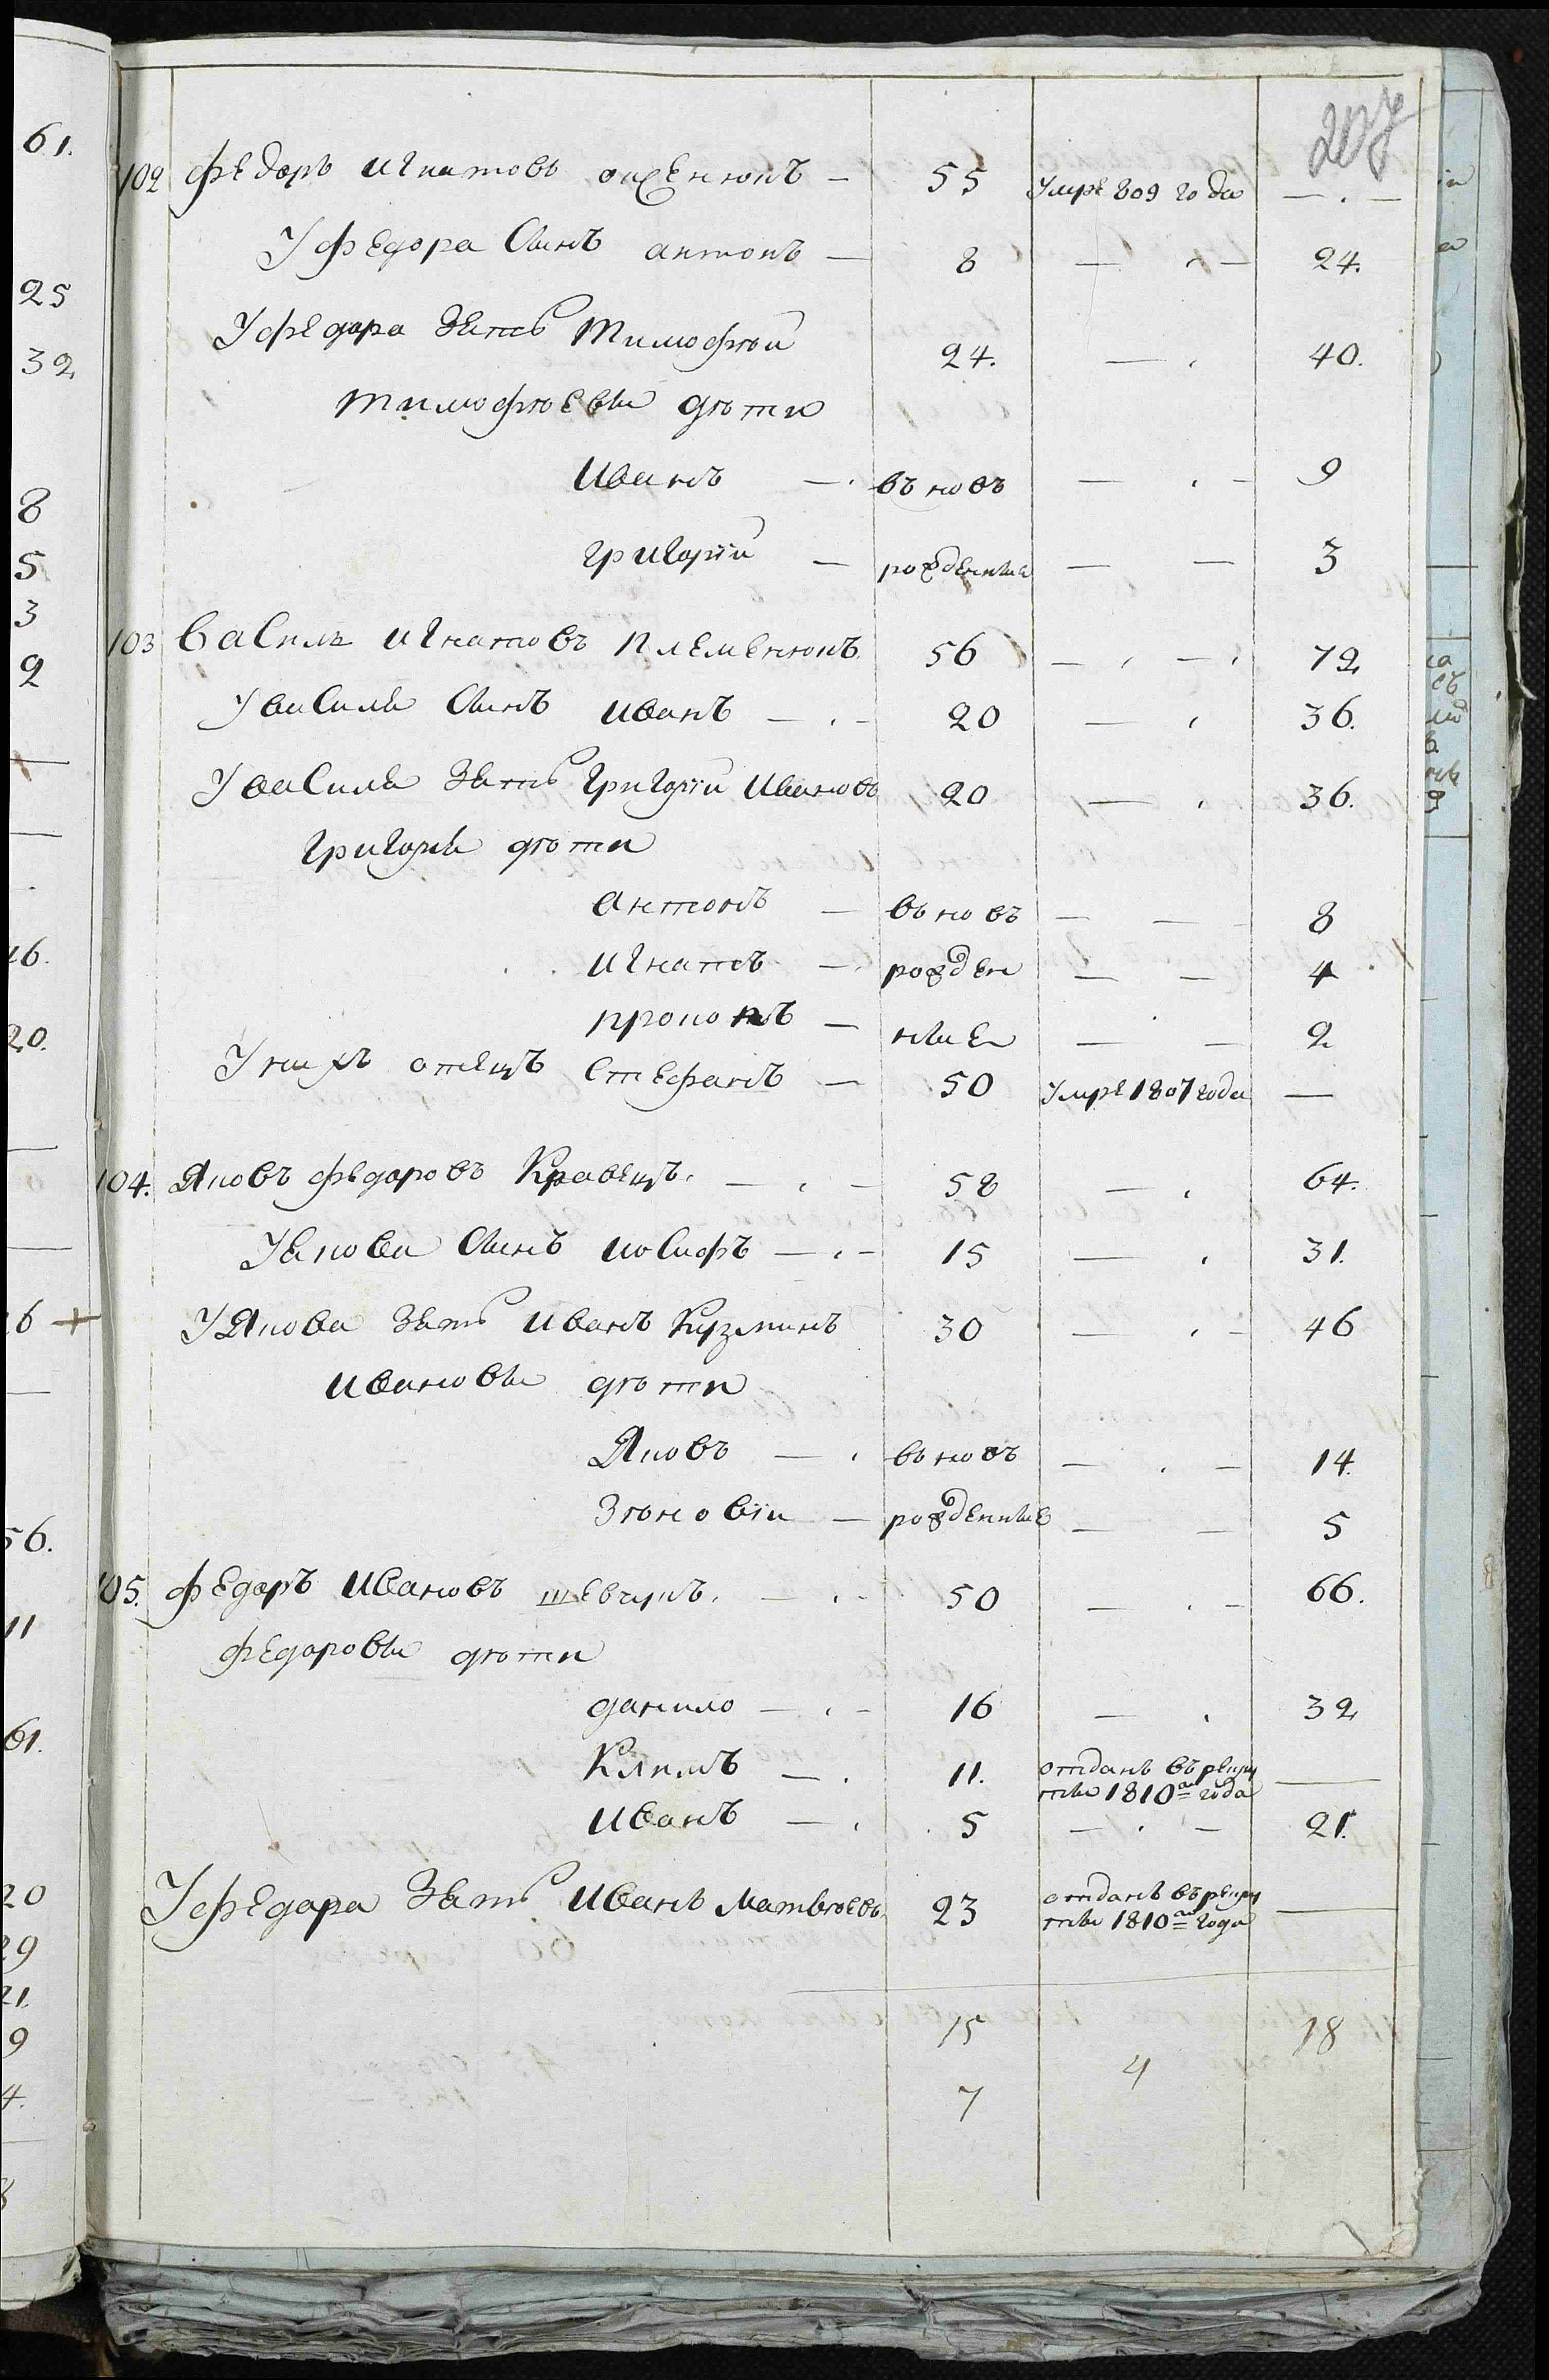 61.
25
32
8
5
3
2
16.
20.
6 +
56.
11
61.
20
29
21.
9
4.
102 Федоръ Игнатовъ — 55 Умре 809 года — . —
У Федора Сынъ антонъ — 8 — . — 24.
У Федора Зять Тимофѣй 24. — . 40.
тимофѣевы дѣти
Иванъ — . въ новъ — . — 9
григорїй — рожденные — — 3
103 Василь Игнатовъ Племенюкъ 56 — . — . 72
У василя Сынъ иванъ — . — 20 — . 36.
У василя Зять Григорїй Ивановъ 20 — . 36.
Григорїя дѣти
антонъ — въ новъ — — 8
игнатъ — рожден — — 4
прокопъ — ные — — 2
У нихъ отецъ Стефанъ — 50 Умре 1807 года —
104. Яковъ Федоровъ Кравецъ. — . — 58 — . 64.
У Якова Сынъ иосифъ — . — 15 — . 31.
У Якова Зять иванъ Кузминъ 30 — . — 46
ивановы дѣти
Яковъ — . въ новъ — . — 14.
Зѣновїй — рожденные — — 5
105. Федоръ Ивановъ шевчукъ. — . — 50 — . — 66.
Федоровы дѣти
данило — . — 16 — . 32
Климъ — . 11. отданъ въ рекру
ты 1810го года —
иванъ — . 5 — . — 21.
У Федора Зять иванъ Матвѣевъ 23 отданъ въ рекру
ты 1810го года —
15 18
4
7